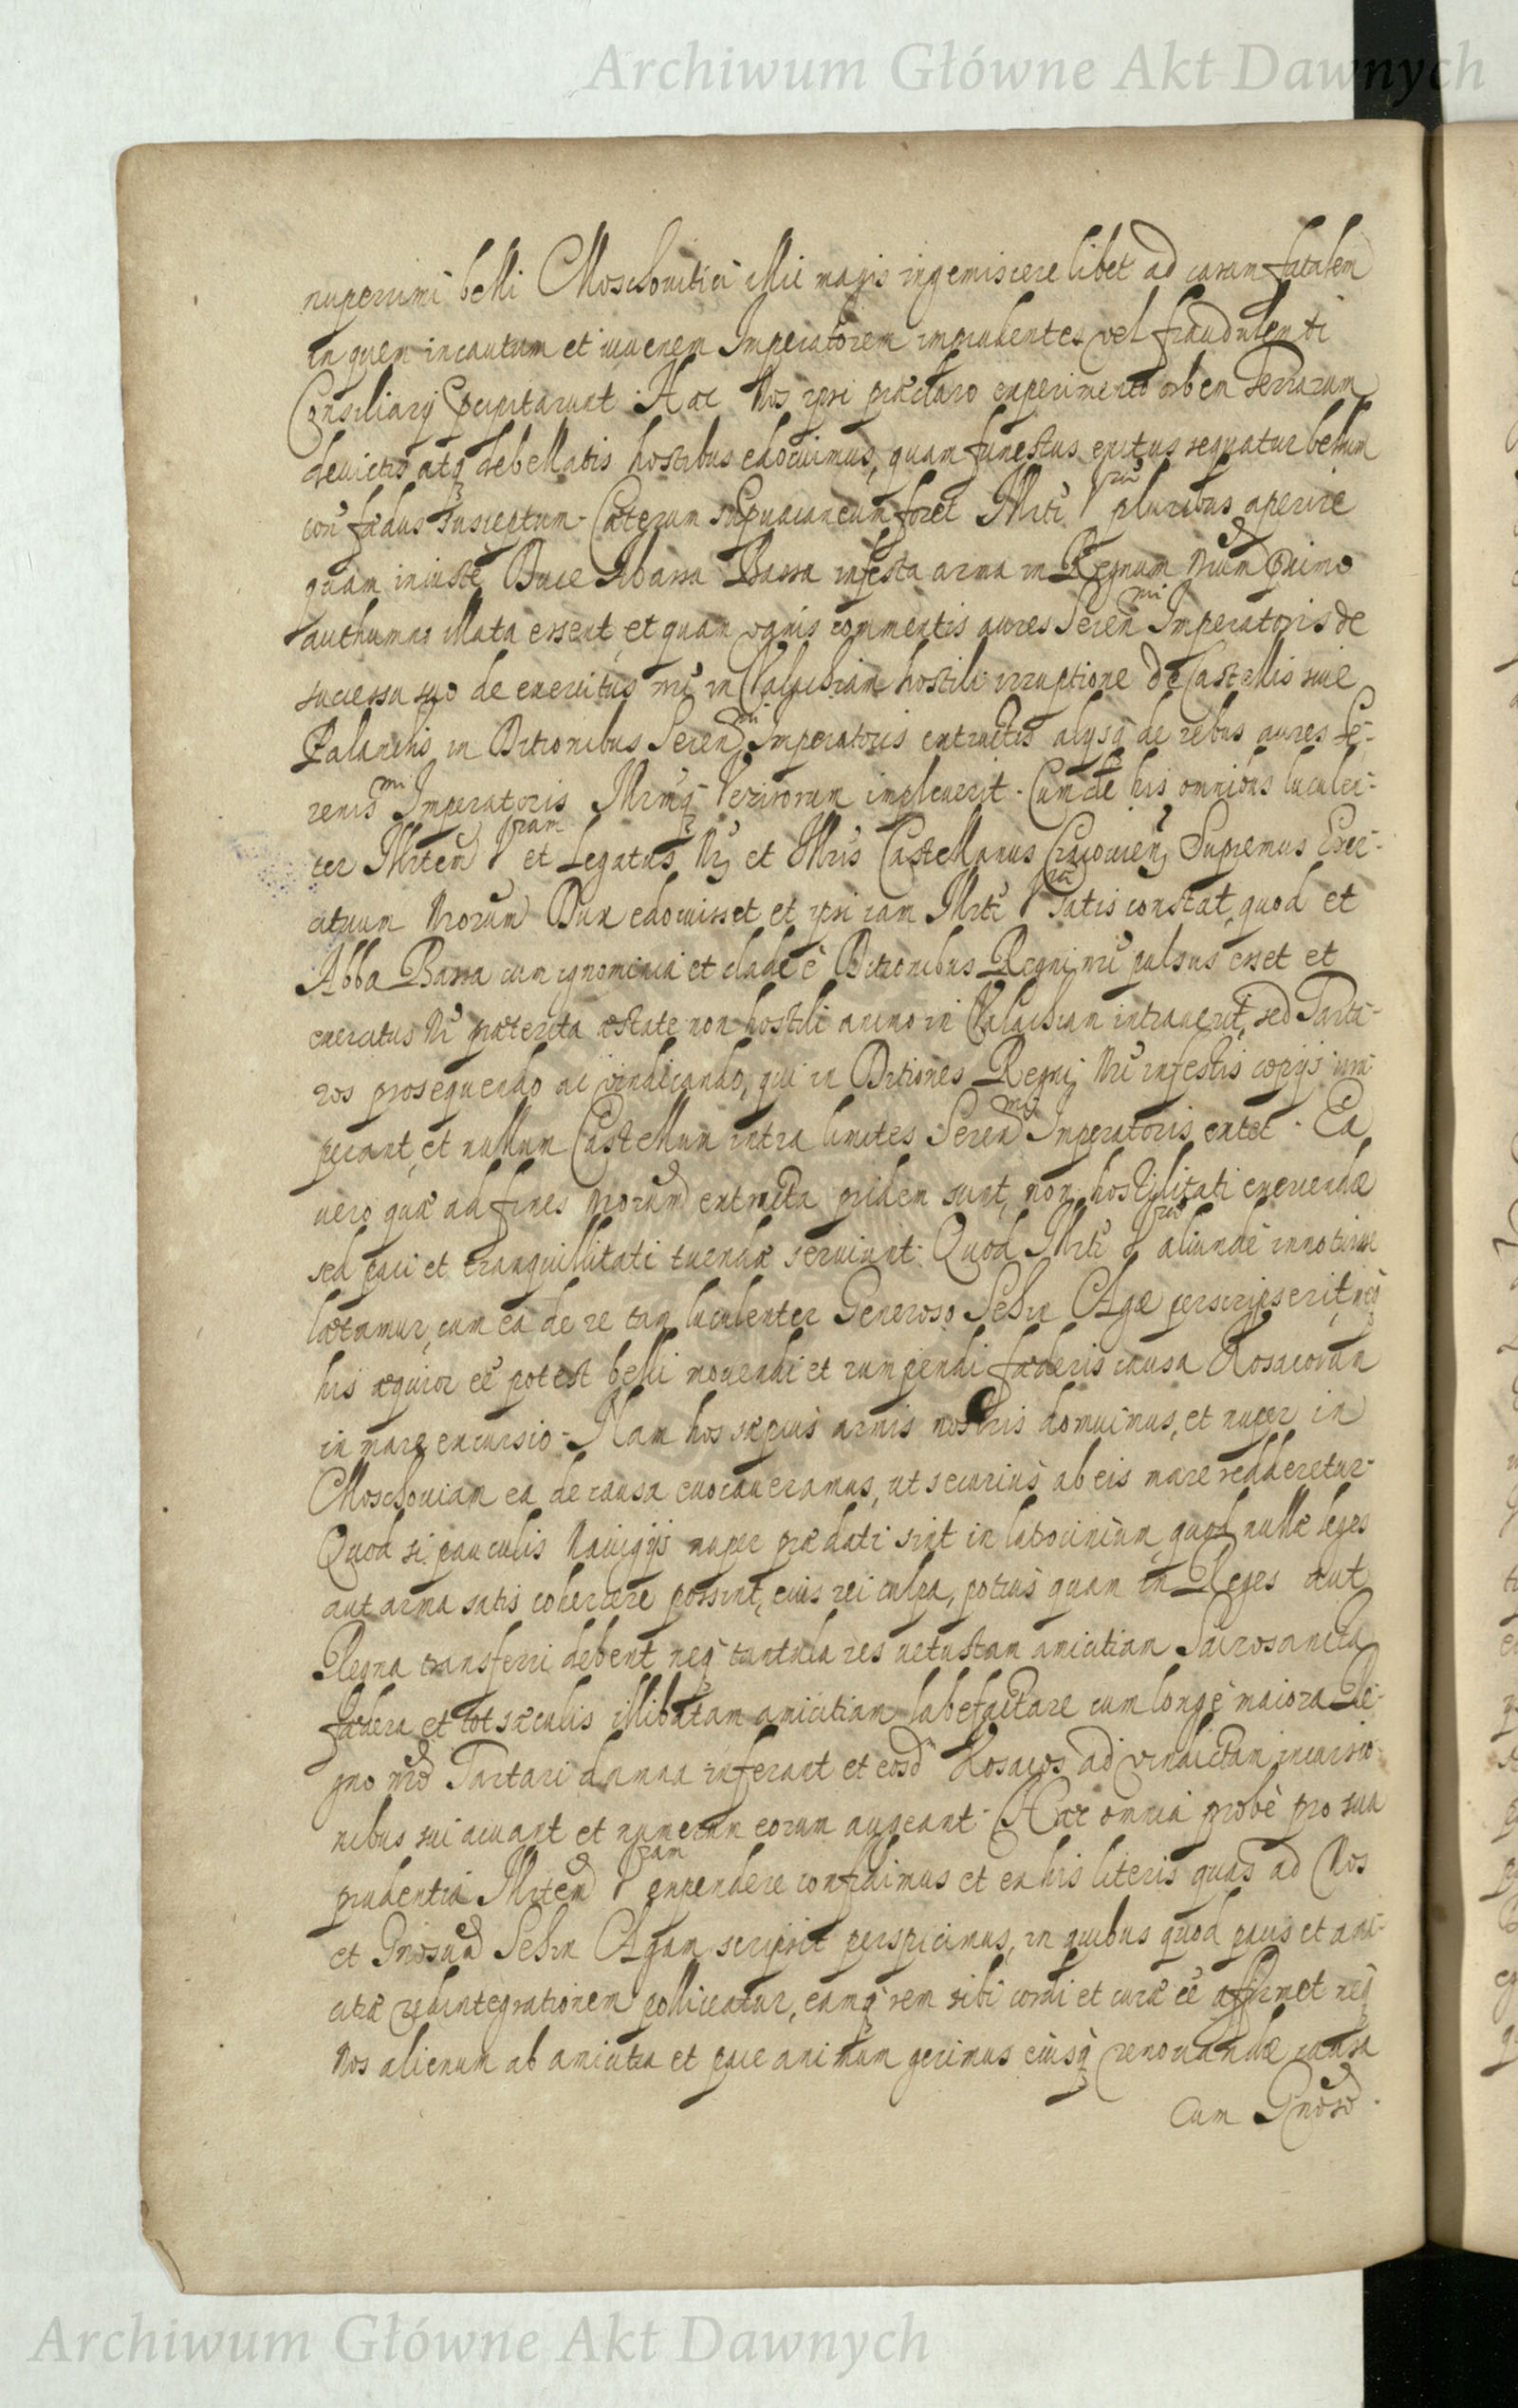 Archiwum Główne Akt Dawnych
nuperrimi belli Moschouitici illic magis ingemiscere libet ad casum fatalem
in quem incautum et iuuenem Imperatorem imprudentes vel fraudulenti
Consiliarij precipitarunt. Hac Nos ipsi præclaro experimento orbem Terrarum
deuictis atq debellatis hostibus edocuimus, quam funestus exitus sequatur bellum
con fædus susceptum. Cæterum supuacaneum foret Illrti Vræ pluribus aperire
quam iniuste Duce Abassa Bassa infesta arma in Regnum Nrum primo
authumno illata essent, et quam vanis commentis aures Seren mi Imperatoris de
successu suo de exercitus nri in Valachiam hostili irruptione de Castellis siue
Palanchis in Ditionibus Seren mi Imperatoris extructis alijsq de rebus aures Se-
renis mi Imperatoris Illrmq Vezirorum impleuerit. Cum de his omnibus luculen-
ter Illrtem Vram et Legatus Nr et Illris Castellanus Cracouien Supremus Exer-
cituum Nrorum Dux edocuisset et ipsi iam Illrti Vræ satis constat, quod et
Abba Bassa cum ignominia et clade è Ditionibus Regni nri pulsus esset et
exercitus Nr præterita æstate non hostili animo in Valachiam intrauerit, sed Tarta-
ros prosequendo ac vindicando, qui in Ditiones Regni Nri infestis copijs irru-
perant, et nullum Castellum intra limites Seren mi Imperatoris extet. Ea
uero quæ ad fines Nrorum extructa pridem sunt, non hostilitati exercendæ
sed paci et tranquillitati tuendæ seruiunt. Quod Illrti Vræ aliunde innotuisse
lætamur, cum ea de re tam luculenter Generoso Sehin Agæ perscripserit, neq
his æquior eē potest belli mouendi et rumpendi fæderis causa Kosacorum
in mare excursio. Nam hos sæpius armis nostris domuimus, et nuper in
Moschouiam ea de causa euocaueramus, ut securius ab eis mare redderetur.
Quod si pauculis Nauigijs nuper prædati sint in latocinium, quod nullæ leges
aut arma satis cohercere possint, eius rei culpa, potius quam in Reges aut
Regna transferri debent neq tantula res uetustam amicitiam Sacrosancta
fædera et tot sæculis illibatam amicitiam labefactare cum longe maiora Re-
gno nro Tartari damna inferant et eosd Kosacos ad vindictam incursio-
nibus sui acuant et numerum eorum augeant. Hæc omnia probè pro sua
prudentia Illrtem Vram expendere confidimus et ex his literis quas ad Nos
et Gnosum Sehin Agam scripsit perspicimus, in quibus quod pacis et ami-
citiæ redintegrationem polliceatur, eamq rem sibi cordi et curæ eē affirmet neq
Nos alienum ab amicitia et pace animum gerimus eiusq renouandæ causa
Cum Gnoso
Archiwum Główne Akt Dawnych